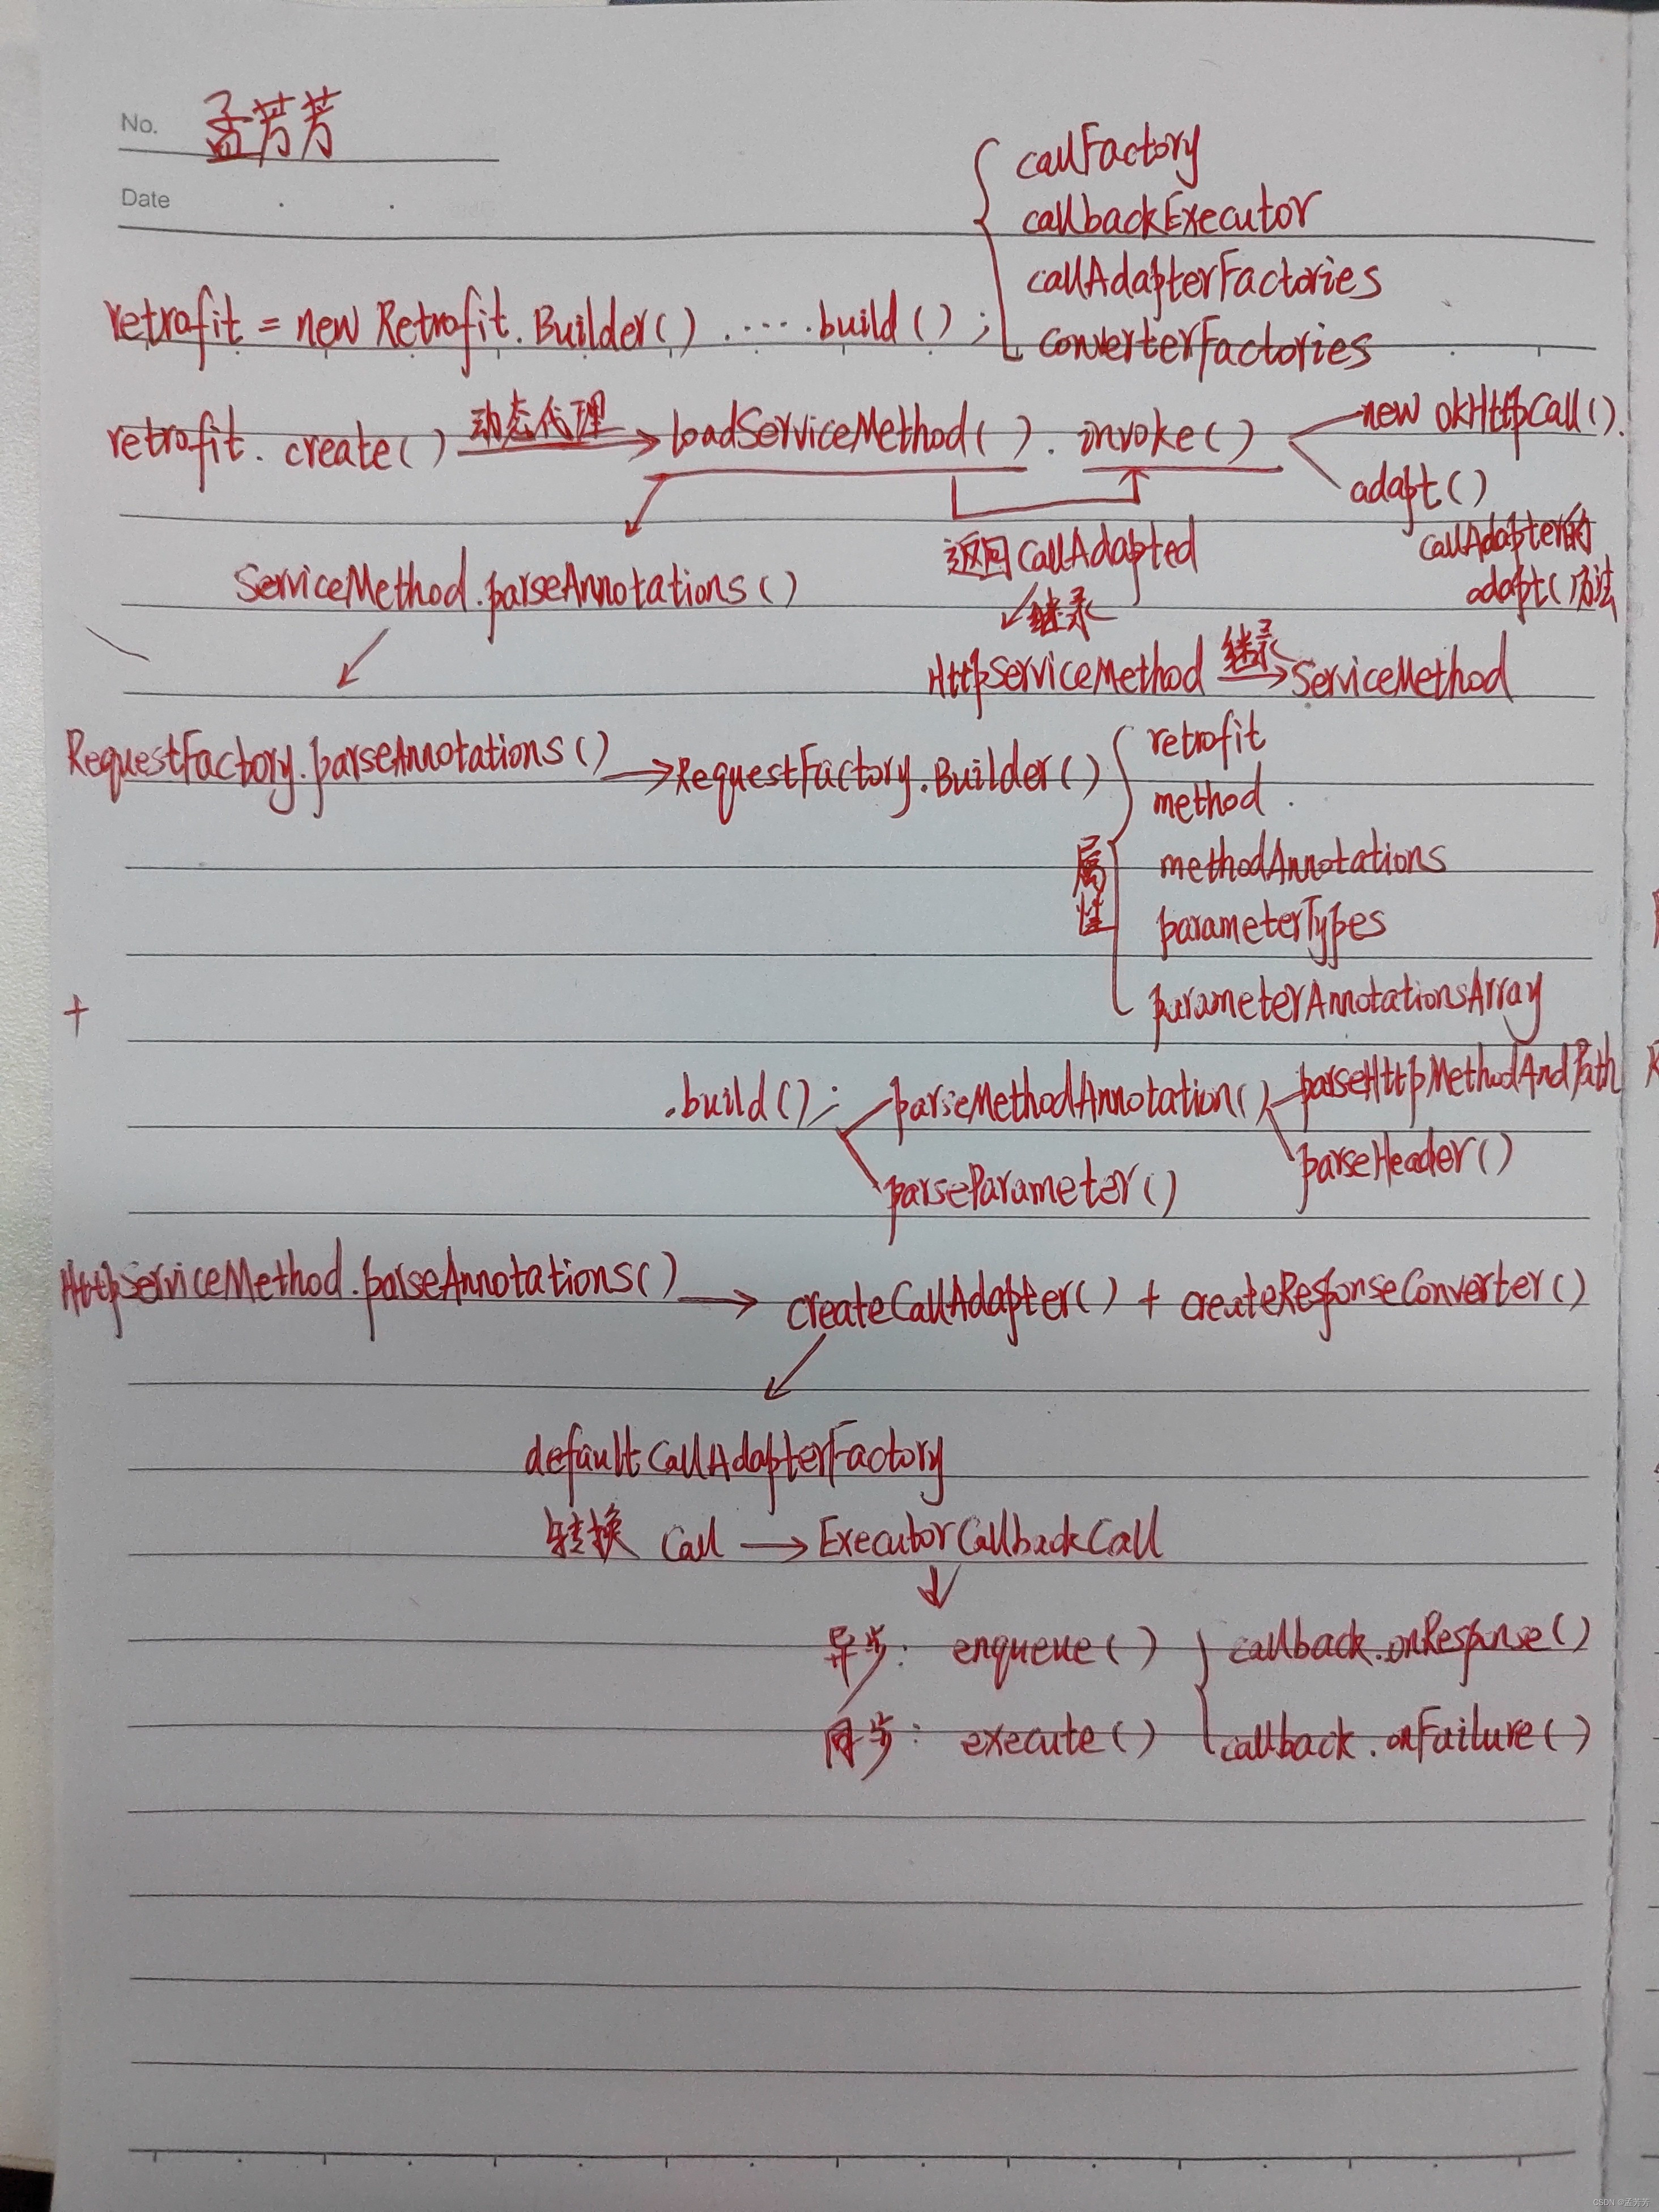 No. 孟芳芳
Date
callFactory
callbackExecutor
callAdapterFactories
retrofit = new Retrofit.Builder() ..... .build();
converterFactories
retrofit. create() 动态代理 loadServiceMethod(). invoke() new okHttpCall().
adapt()
callAdapter的
adapt()方法
返回CallAdapted
ServiceMethod.parseAnnotations()
继承
HttpServiceMethod 继承 ServiceMethod
RequestFactory.parseAnnotations() → RequestFactory.Builder()
retrofit
method
属性
methodAnnotations
parameterTypes
parameterAnnotationsArray
+
.build(); parseMethodAnnotation() parseHttpMethodAndPath
parseHeader()
parseParameter()
HttpServiceMethod.parseAnnotations() → createCallAdapter() + createResponseConverter()
defaultCallAdapterFactory
转换 Call → ExecutorCallbackCall
异步: enqueue() callback.onResponse()
同步: execute() callback.onFailure()
CSDN @孟芳芳